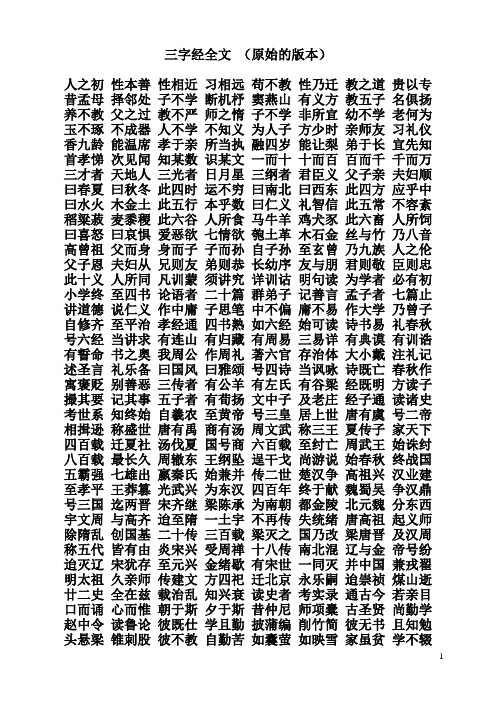 三字经全文 （原始的版本）
人之初 性本善 性相近 习相远 苟不教 性乃迁 教之道 贵以专
昔孟母 择邻处 子不学 断机杼 窦燕山 有义方 教五子 名俱扬
养不教 父之过 教不严 师之惰 子不学 非所宜 幼不学 老何为
玉不琢 不成器 人不学 不知义 为人子 方少时 亲师友 习礼仪
香九龄 能温席 孝于亲 所当执 融四岁 能让梨 弟于长 宜先知
首孝悌 次见闻 知某数 识某文 一而十 十而百 百而千 千而万
三才者 天地人 三光者 日月星 三纲者 君臣义 父子亲 夫妇顺
曰春夏 曰秋冬 此四时 运不穷 曰南北 曰西东 此四方 应乎中
曰水火 木金土 此五行 本乎数 曰仁义 礼智信 此五常 不容紊
稻粱菽 麦黍稷 此六谷 人所食 马牛羊 鸡犬豕 此六畜 人所饲
曰喜怒 曰哀惧 爱恶欲 七情欲 匏土革 木石金 丝与竹 乃八音
高曾祖 父而身 身而子 子而孙 自子孙 至玄曾 乃九族 人之伦
父子恩 夫妇从 兄则友 弟则恭 长幼序 友与朋 君则敬 臣则忠
此十义 人所同 凡训蒙 须讲究 详训诂 明句读 为学者 必有初
小学终 至四书 论语者 二十篇 群弟子 记善言 孟子者 七篇止
讲道德 说仁义 作中庸 子思笔 中不偏 庸不易 作大学 乃曾子
自修齐 至平治 孝经通 四书熟 如六经 始可读 诗书易 礼春秋
号六经 当讲求 有连山 有归藏 有周易 三易详 有典谟 有训诰
有誓命 书之奥 我周公 作周礼 著六官 存治体 大小戴 注礼记
述圣言 礼乐备 曰国风 曰雅颂 号四诗 当讽咏 诗既亡 春秋作
寓褒贬 别善恶 三传者 有公羊 有左氏 有谷梁 经既明 方读子
撮其要 记其事 五子者 有荀扬 文中子 及老庄 经子通 读诸史
考世系 知终始 自羲农 至黄帝 号三皇 居上世 唐有虞 号二帝
相揖逊 称盛世 唐有禹 商有汤 周文武 称三王 夏传子 家天下
四百载 迁夏社 汤伐夏 国号商 六百载 至纣亡 周武王 始诛纣
八百载 最长久 周辙东 王纲坠 逞干戈 尚游说 始春秋 终战国
五霸强 七雄出 嬴秦氏 始兼并 传二世 楚汉争 高祖兴 汉业建
至孝平 王莽篡 光武兴 为东汉 四百年 终于献 魏蜀吴 争汉鼎
号三国 迄两晋 宋齐继 梁陈承 为南朝 都金陵 北元魏 分东西
宇文周 与高齐 迨至隋 一土宇 不再传 失统绪 唐高祖 起义师
除隋乱 创国基 二十传 三百载 梁灭之 国乃改 梁唐晋 及汉周
称五代 皆有由 炎宋兴 受周禅 十八传 南北混 辽与金 帝号纷
迨灭辽 宋犹存 至元兴 金绪歇 有宋世 一同灭 并中国 兼戎翟
明太祖 久亲师 传建文 方四祀 迁北京 永乐嗣 迨崇祯 煤山逝
廿二史 全在兹 载治乱 知兴衰 读史者 考实录 通古今 若亲目
口而诵 心而惟 朝于斯 夕于斯 昔仲尼 师项橐 古圣贤 尚勤学
赵中令 读鲁论 彼既仕 学且勤 披蒲编 削竹简 彼无书 且知勉
头悬梁 锥刺股 彼不教 自勤苦 如囊萤 如映雪 家虽贫 学不辍
1